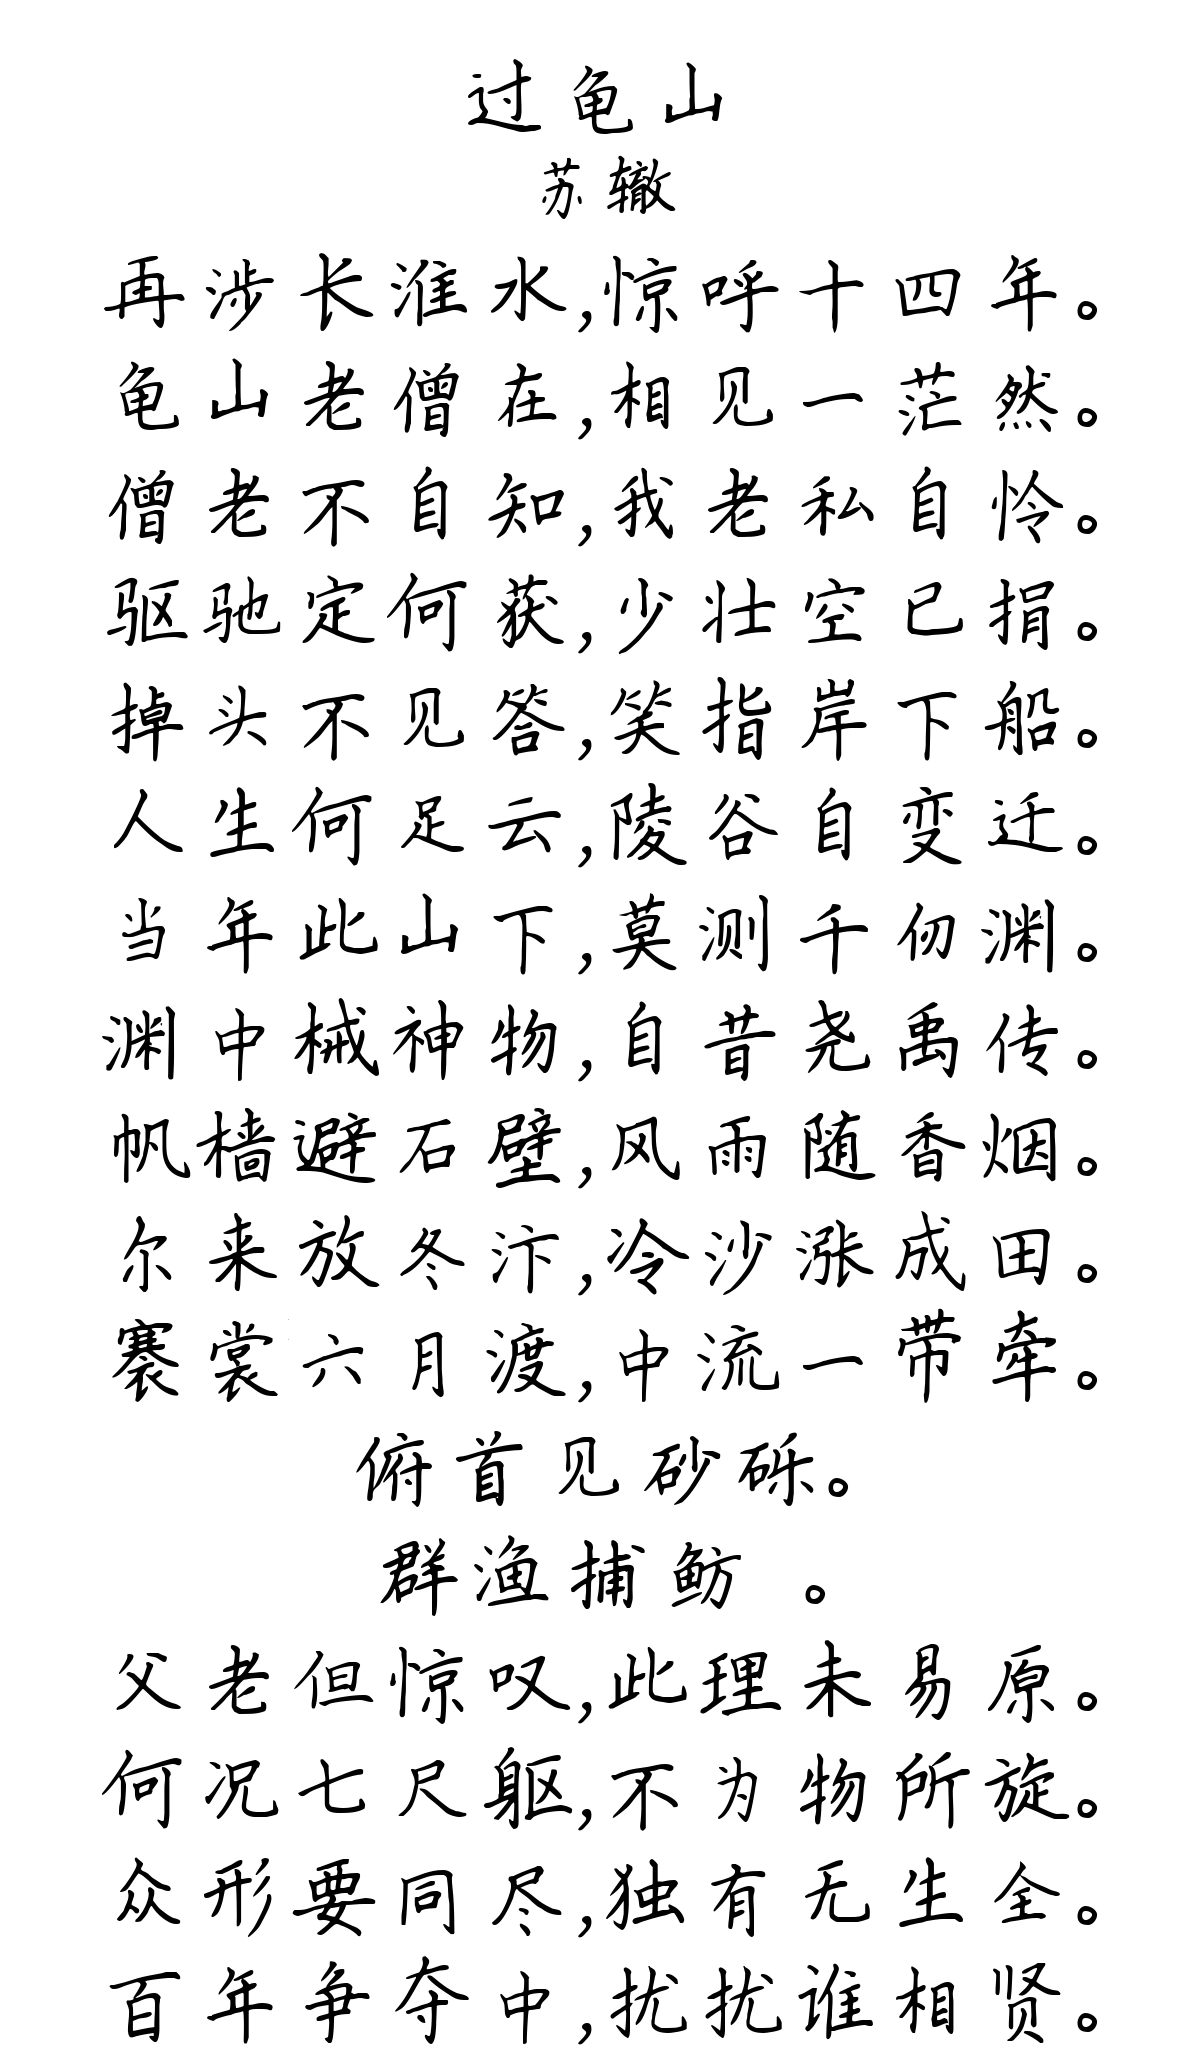 过龟山
苏辙
再涉长淮水,惊呼十四年。
龟山老僧在,相见一茫然。
僧老不自知,我老私自怜。
驱驰定何获,少壮空已捐。
掉头不见答,笑指岸下船。
人生何足云,陵谷自变迁。
当年此山下,莫测千仞渊。
渊中械神物,自昔尧禹传。
帆樯避石壁,风雨随香烟。
尔来放冬汴,冷沙涨成田。
褰裳六月渡,中流一带牵。
俯首见砂砾。
群渔捕鲂 。
父老但惊叹,此理未易原。
何况七尺躯,不为物所旋。
众形要同尽,独有无生全。
百年争夺中,扰扰谁相贤。